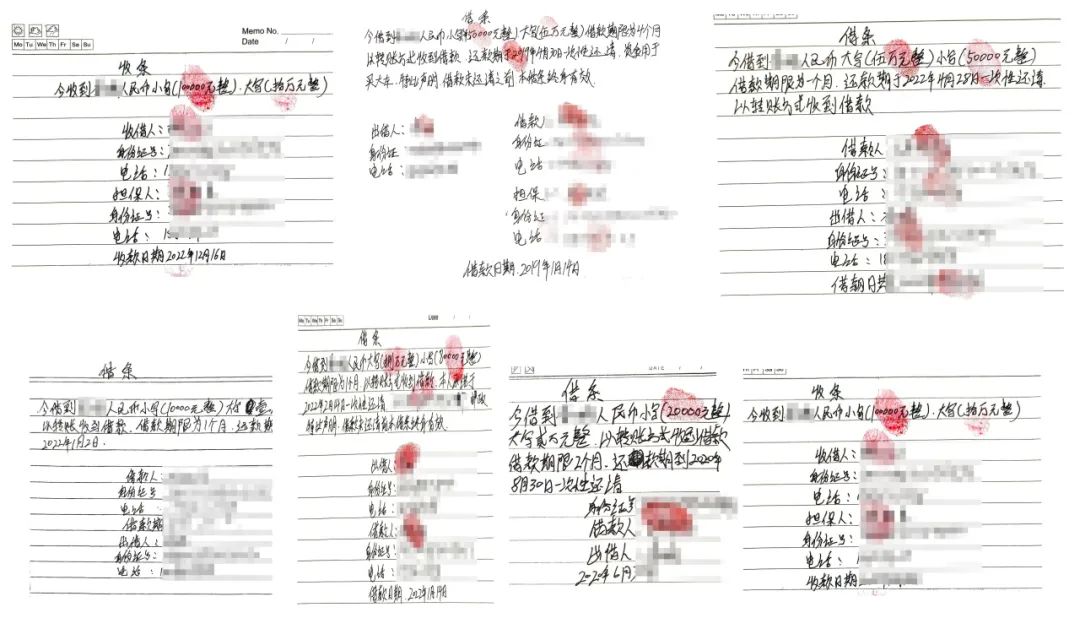 Memo No.
Mo Tu We Th Fr Sa Su
Date / /
收条
今收到 人民币小写(100000元整).大写(拾万元整)
收借人:
身份证号:
电话:1
担保人:
身份证号:
电话:15
收款日期2022年12月16日
借条
今借到 人民币小写(50000元整)大写(伍万元整)借款期限为4个月
以转账方式收到借款 还款期于2019年 月30日一次性还清,资金用于
买大车.特此声明 借款未还清之前 本借条始终有效
出借人:
身份证:
电话:
借款
身份证
电话
担保
身份证
电话
借款日期.2019年1月14日
借条
今借到 人民币大写(伍万元整)小写(50000元整)
借款期限为一个月.还款期于2022年 月28日一次性还清
以转账方式收到借款
借款人
身份证号:
电话:
出借人:
身份证号:
电话:18
借款日期
借条
今借到 人民币小写(10000元整)
以转账收到借款.借款期限为1个月.还款期
2022年1月2日.
借款人:
身份证号
电话
借款期
出借人:
身份证号:
电话:1
Mo Tu We Th Fr Sa Su
Date / /
借条
今借到 人民币大写(捌万元整)小写(80000元整)
借款期限为1个月.以转账方式收到借款.
2022年2月19日一次性还清
特此声明.借款未还清前本借条始终有效.
出借人:
身份证号:
电话:
借款人:
身份证号:
电话:
借款日期.2022年1月19日
DATE / /
借条
今借到 人民币小写(20000元整)
大写贰万元整.以转账方式收到借款
借款期限2个月.还款期到2020年
8月30日一次性还清
身份证号
借款人
出借人
2020年6月
收条
今收到 人民币小写(100000元整).大写(拾万元整)
收借人:
身份证号:
电话:1
担保人:
身份证号:
电话:
收款日期